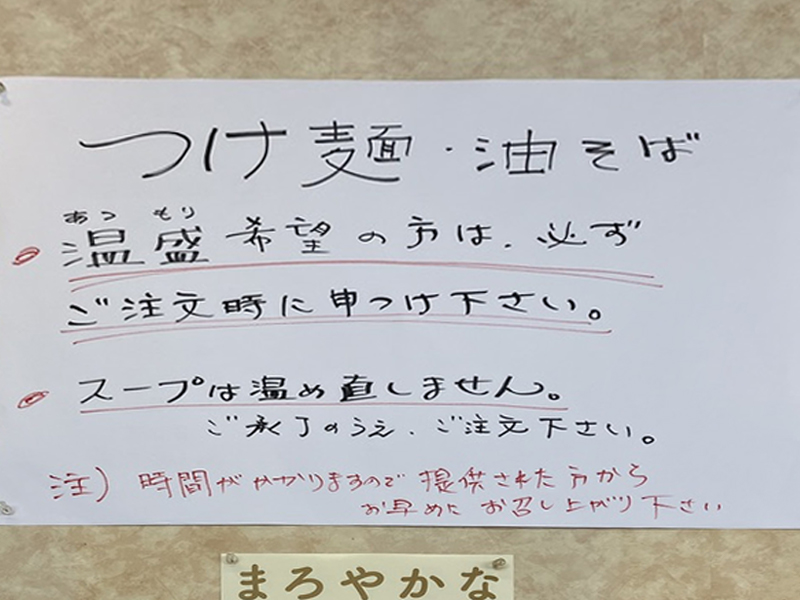 つけ麺・油そば
あつ もり
温盛希望の方は、必ず
ご注文時に申つけ下さい。
スープは温め直しません。
ご承了のうえ、ご注文下さい。
注）時間がかかりますので提供された方から
お早めにお召し上がり下さい
まろやかな